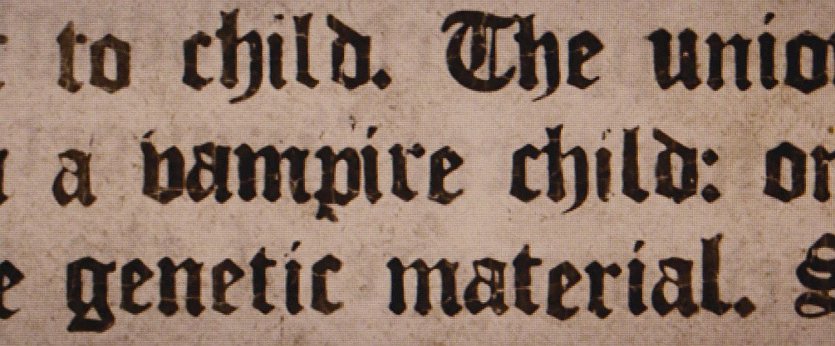 to child. The
a vampire child:
genetic material.